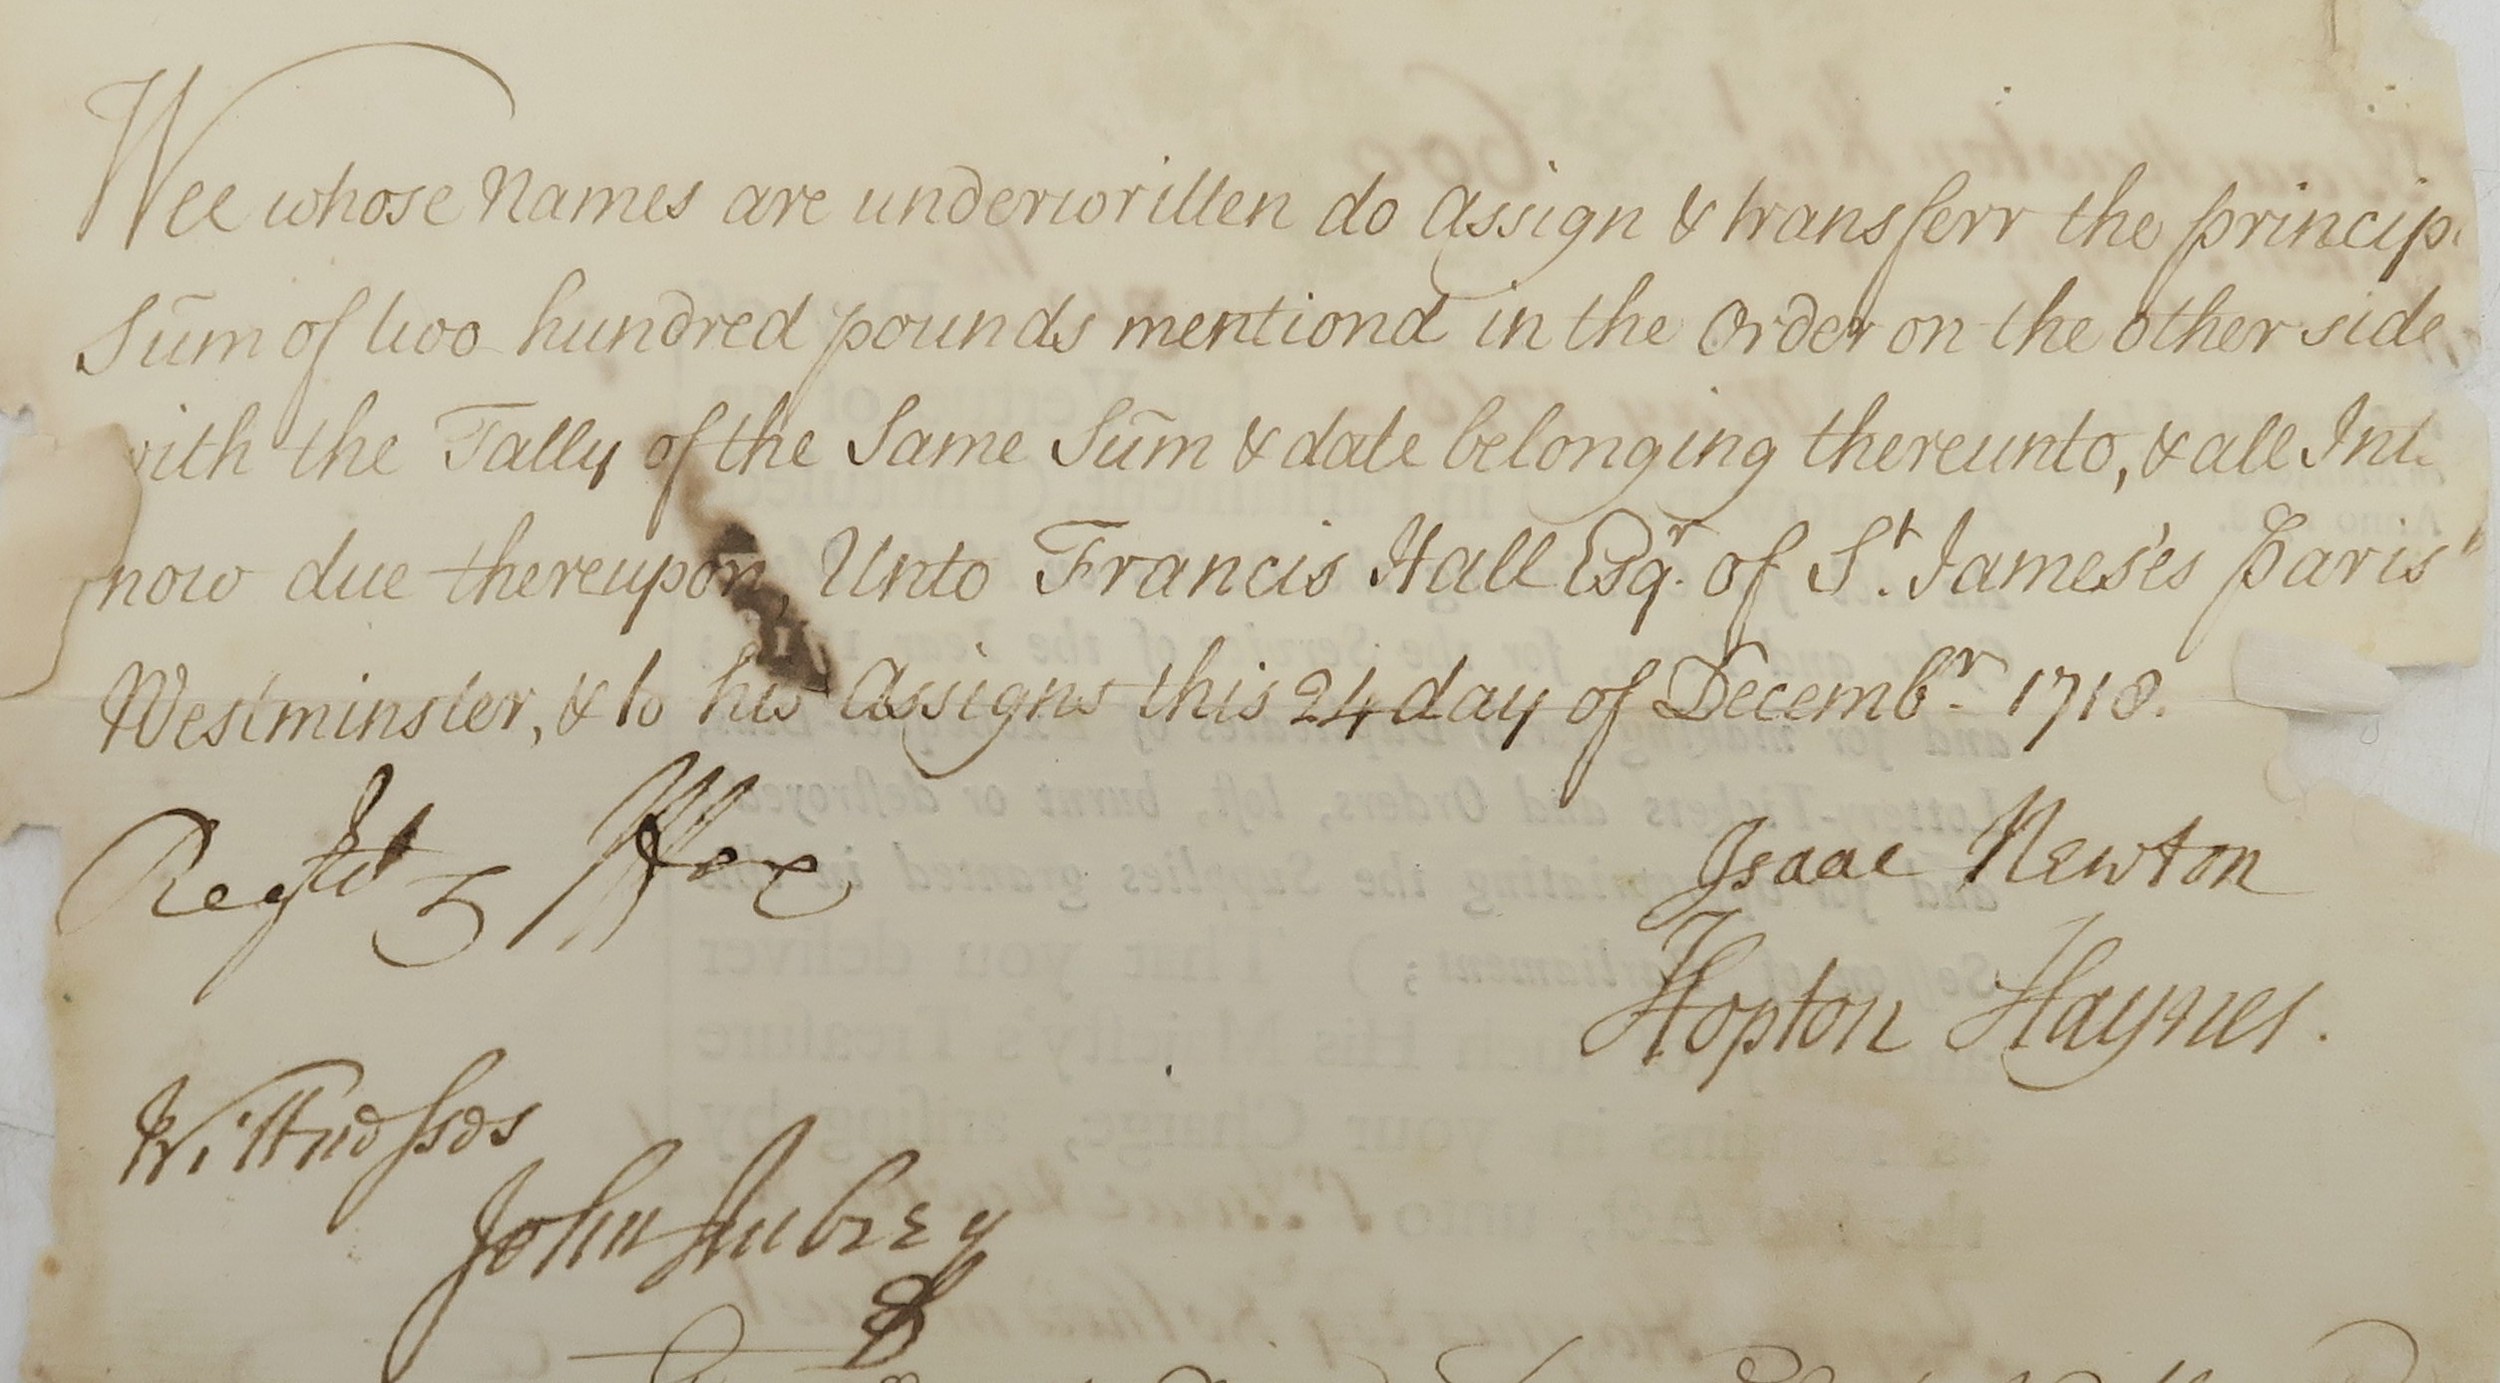 Wee whose Names are underwritten do assign & transferr the princip
Sum of two hundred pounds mentiond in the Order on the other side
with the Tally of the Same Sum & date belonging thereunto, & all Int
now due thereupon, Unto Francis Hall Esqr. of St. James's Parish
Westminster, & to his Assigns this 24 day of Decembr. 1718.
Isaac Newton
Regt'd
Hopton Haynes.
Wittnesses
John Aubrey